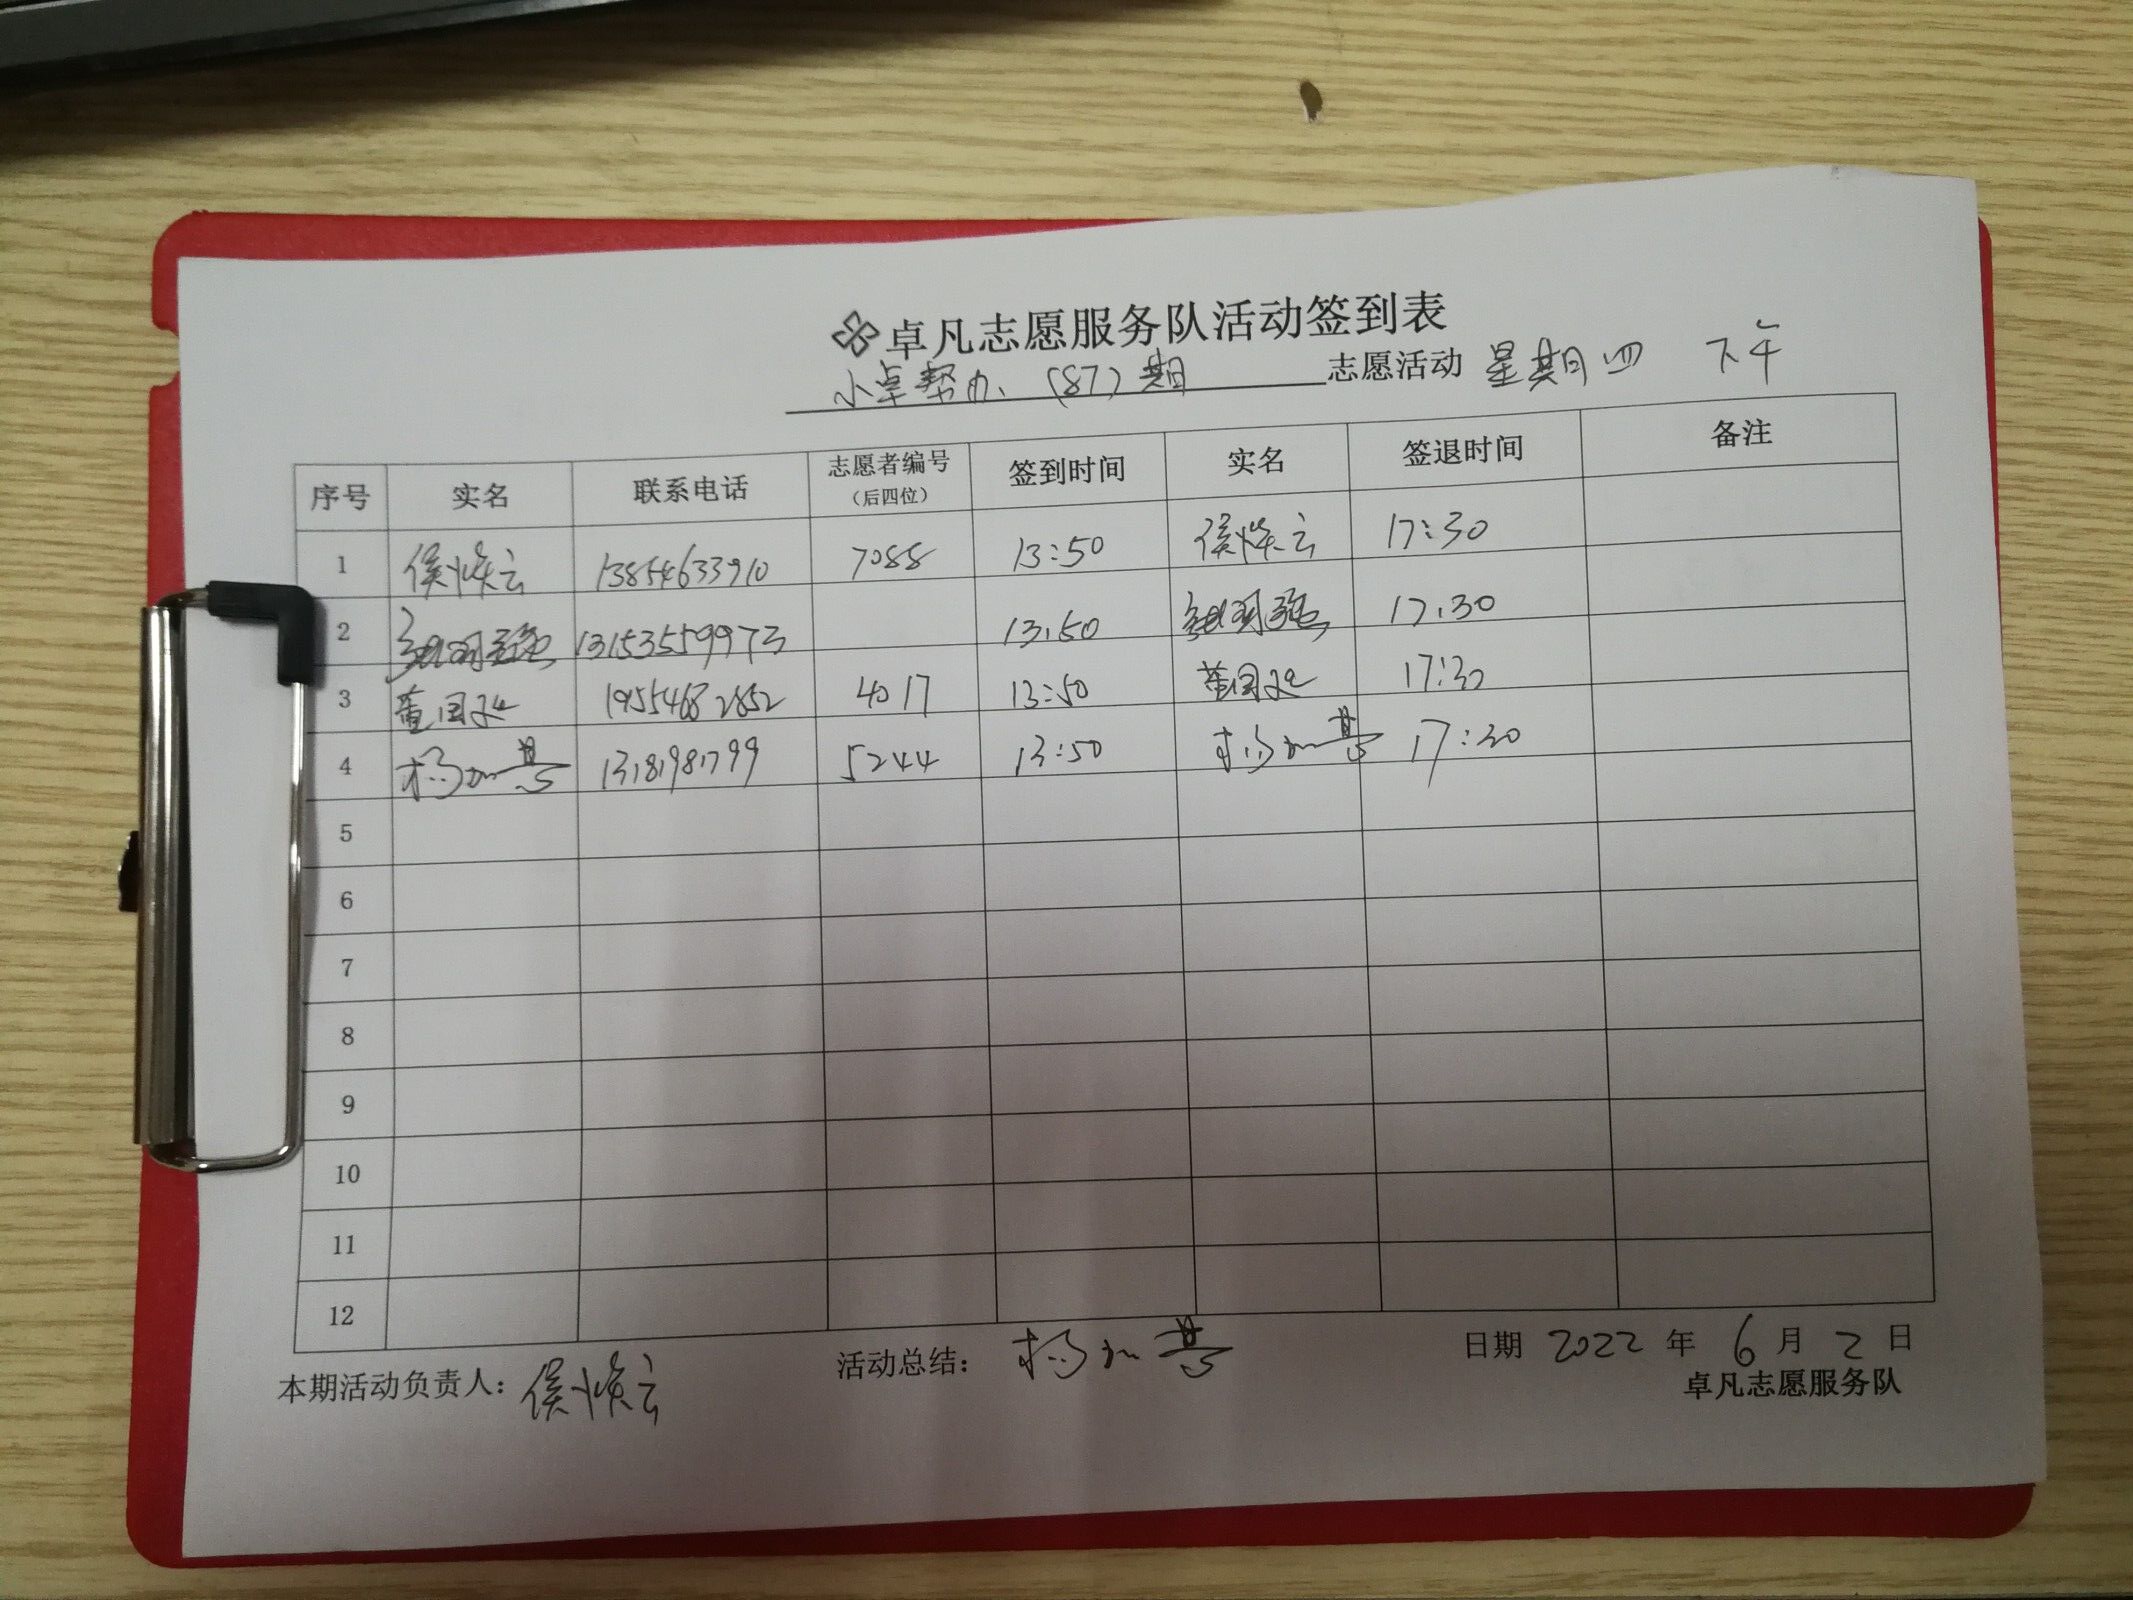 卓凡志愿服务队活动签到表
小卓帮办(87)期 志愿活动 星期四 下午
序号 实名 联系电话 志愿者编号(后四位) 签到时间 实名 签退时间 备注
1 侯焕云 13854633910 7088 13:50 侯焕云 17:30
2 13153559973 13:50 17:30
3 董国 19554682852 4017 13:50 董国 17:30
4 杨加 13181981799 5244 13:50 杨加 17:30
5
6
7
8
9
10
11
12
本期活动负责人: 侯焕云 活动总结: 杨加 日期 2022 年 6 月 2 日
卓凡志愿服务队